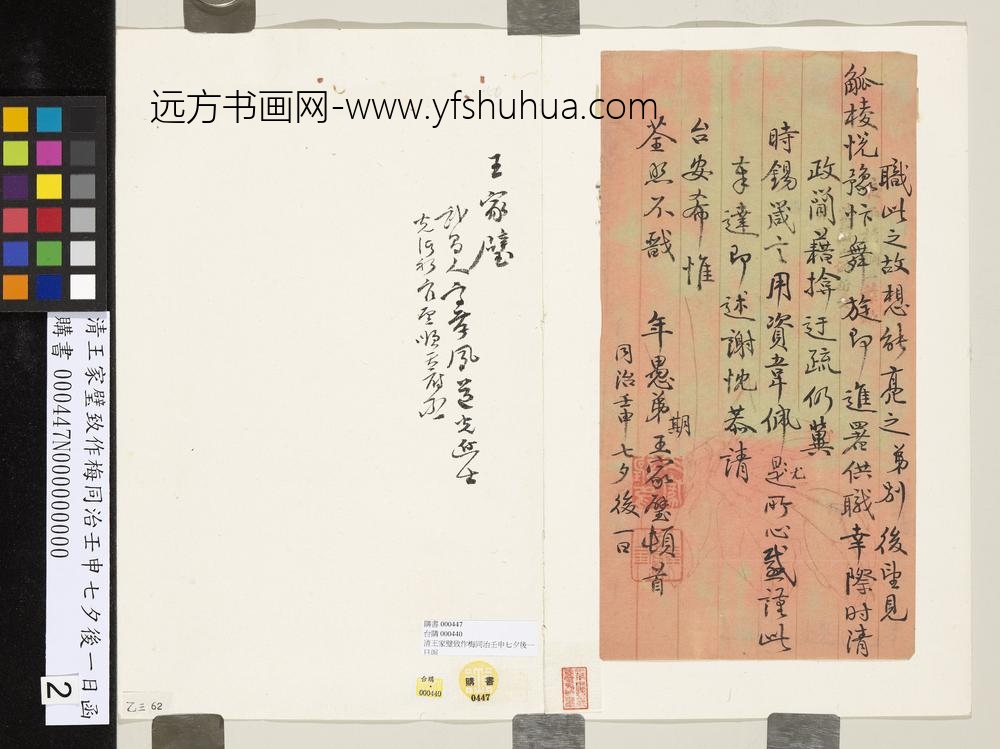 远方书画网-www.yfshuhua.com
職此之故想能亮之弟別後望見
觚棱悦豫忭舞旋即進署供職幸際时清
政简藉揜迂疏仍冀
時錫箴言用資韋佩尤是所心感謹此
奉達即述謝忱恭請
台安希惟
荃照不戩
年愚弟期王家璧頓首
同治壬申七夕後一日
王家璧
武昌人字孝鳳道光進士
光祿寺
清王家璧致作梅同治壬申七夕後一日函
購書 000447N000000000
2
購書 000447
台購 000440
清王家璧致作梅同治壬申七夕後一
日函
台購
000440
購書
0447
乙三 62